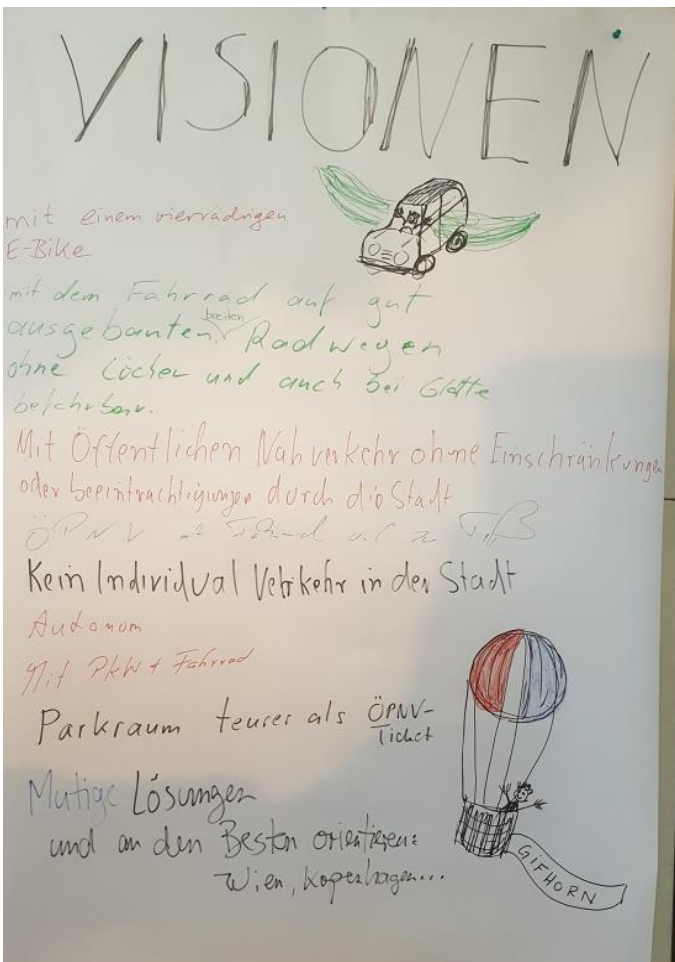 VISIONEN
mit einem vierrädrigen
E-Bike
mit dem Fahrrad auf gut
ausgebauten breiten Radwegen
ohne Löcher und auch bei Glätte
befahrbar.
Mit Öffentlichen Nahverkehr ohne Einschränkungen
oder beeinträchtigungen durch die Stadt
ÖPNV mit Fahrrad und zu Fuß
Kein Individual Verkehr in der Stadt
Autonom
Mit PKW + Fahrrad
Parkraum teurer als ÖPNV-
Ticket
Mutige Lösungen
und an den Besten orientieren:
Wien, Kopenhagen...
GIFHORN